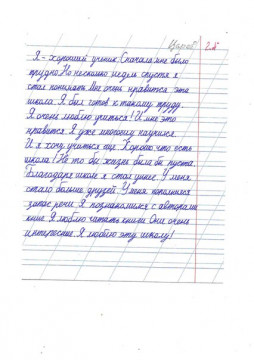 2 "А"
Я - хороший ученик. Сначала мне было
трудно. Но несколько недель спустя я
стал понимать. Мне очень нравится эта
школа. Я был готов к такому труду.
Я очень люблю учиться! И мне это
нравится. Я уже многому научился.
И я хочу учиться ещё. Хорошо, что есть
школа! Не то бы жизнь была бы пуста.
Благодаря школе я стал умнее. У меня
стало больше друзей. У меня пополнился
запас речи. Я познакомился с авторами
книг. Я люблю читать книги. Они очень
интересные. Я люблю эту школу!